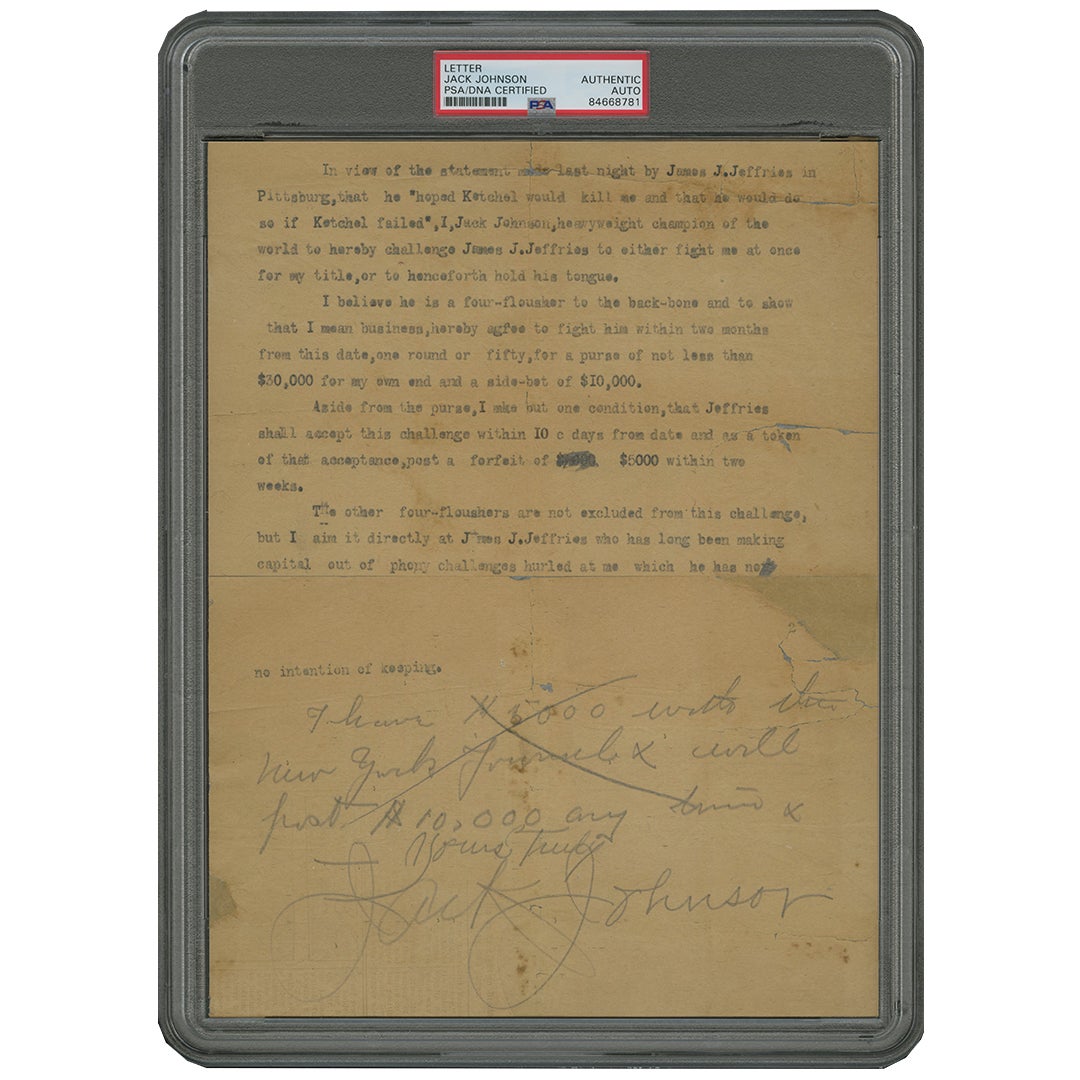 LETTER
JACK JOHNSON AUTHENTIC
PSA/DNA CERTIFIED AUTO
PSA 84668781
In view of the statement made last night by James J.Jeffries in
Pittsburg,that he "hoped Ketchel would kill me and that he would do
so if Ketchel failed",I,Jack Johnson,heavyweight champion of the
world to hereby challenge James J.Jeffries to either fight me at once
for my title,or to henceforth hold his tongue.
I believe he is a four-flousher to the back-bone and to show
that I mean business,hereby agfee to fight him within two months
from this date,one round or fifty,for a purse of not less than
$30,000 for my own end and a side-bet of $10,000.
Aside from the purse,I mke but one condition,that Jeffries
shall accept this challenge within 10 c days from date and as a token
of that acceptance,post a forfeit of $5000 within two
weeks.
The other four-floushers are not excluded from this challenge,
but I aim it directly at James J.Jeffries who has long been making
capital out of phony challenges hurled at me which he has
no intention of keeping.
I have $5000 with the
New York Journal & will
post $10,000 any time x
Yours Truly
Jack Johnson